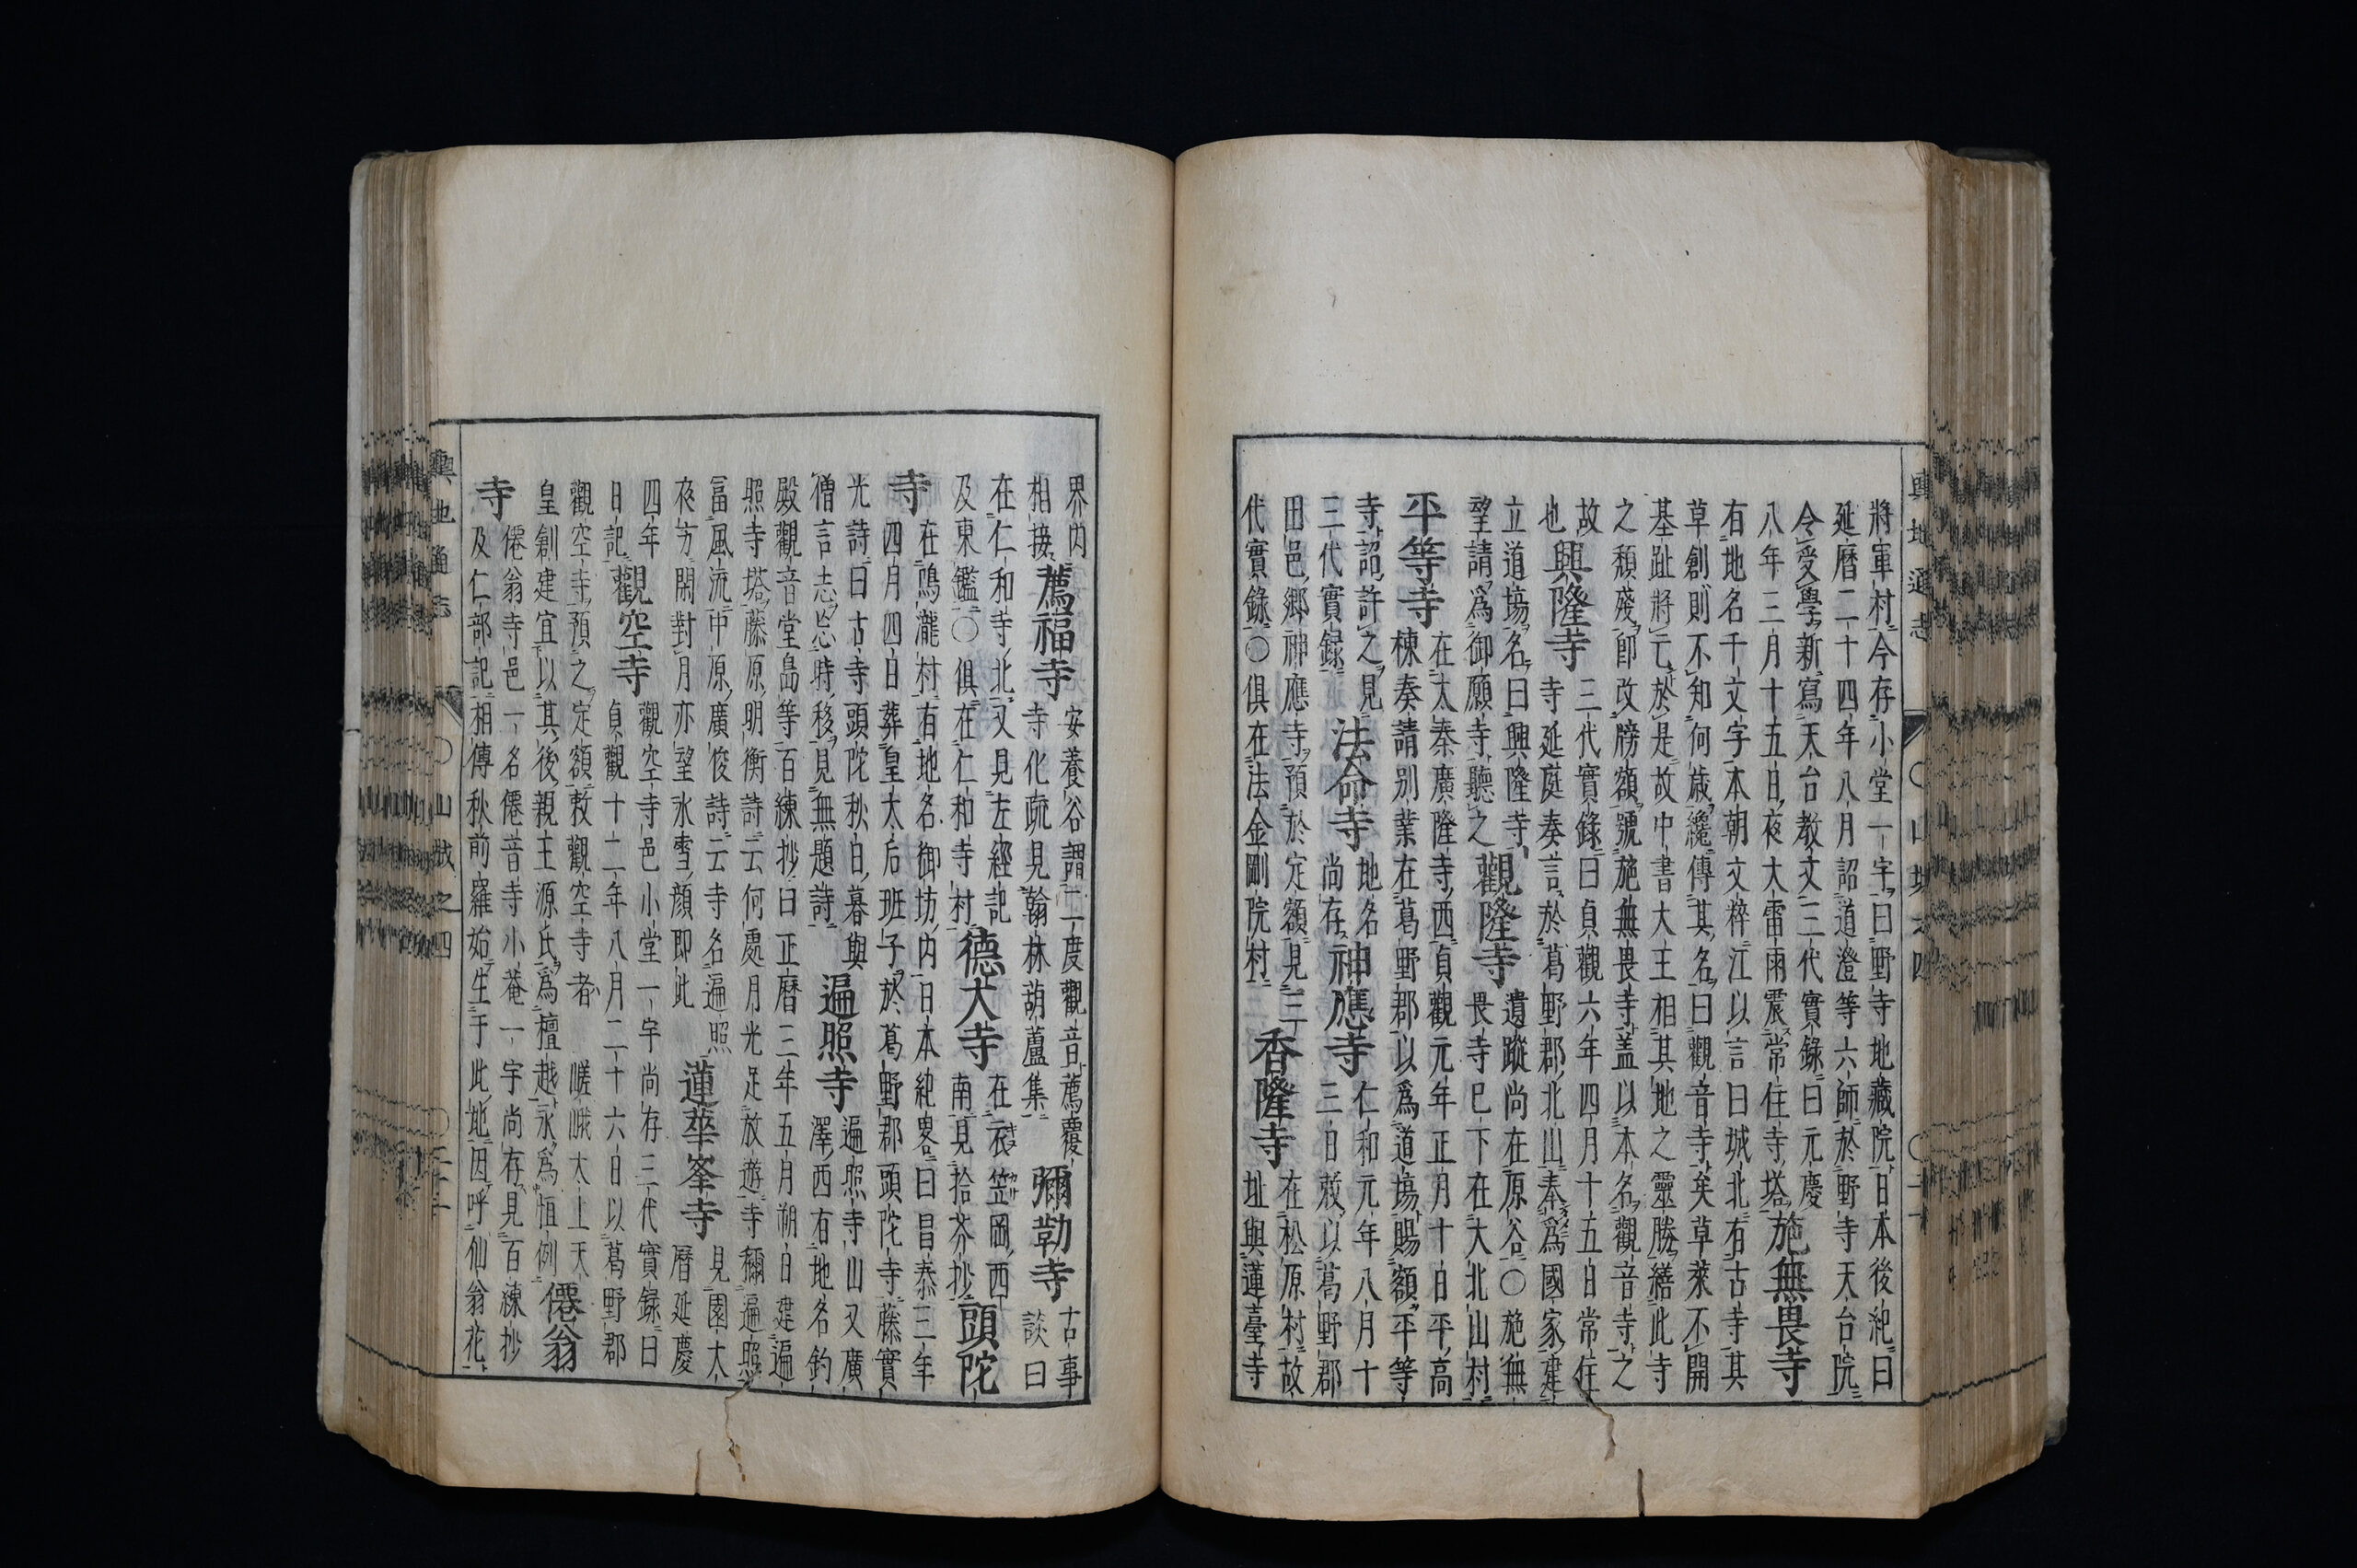 輿地通志 〇山城之四
將軍村今存小堂一宇曰野寺地藏院日本後紀曰
延曆二十四年八月詔道澄等六師於野寺天台院
令受學新寫天台教文三代實錄曰元慶
八年三月十五日夜大雷雨震常住寺塔
施無畏寺
有地名千文字本朝文粹江以言曰城北有古寺其
草創則不知何歲纔傳其名曰觀音寺矣草萊不開
基趾將亡於是故中書大王相其地之靈勝繕此寺
之頹殘即改牓額號施無畏寺蓋以本名觀音寺之
故
也
興隆寺
三代實錄曰貞觀六年四月十五日常住
寺延庭奏言於葛野郡北山奉爲國家建
立道場名曰興隆寺
望請爲御願寺聽之
觀隆寺
遺蹤尚在原谷〇施無
畏寺已下在大北山村
平等寺
在太秦廣隆寺西貞觀元年正月十日平高
棟奏請別業在葛野郡以爲道場賜額平等
寺詔許之見
三代實錄
法命寺
地名
尚存
神應寺
仁和元年八月十
三日敕以葛野郡
田邑鄉神應寺預於定額見三
代實錄〇俱在法金剛院村
香隆寺
在松原村故
址與蓮臺寺
界內
相接
薦福寺
安養谷謂二度觀音薦覆
寺化疏見翰林葫蘆集
彌勒寺
古事
談曰
在仁和寺北又見左經記
及東鑑〇俱在仁和寺村
德大寺
在衣笠岡西
南見拾芥抄
頭陀
寺
在鳴瀧村有地名御坊內日本紀畧曰昌泰三年
四月四日葬皇太后班子於葛野郡頭陀寺藤實
光詩曰古寺頭陀秋日暮與
僧言志忘時移見無題詩
遍照寺
遍照寺山又廣
澤西有地名釣
殿觀音堂島等百練抄曰正曆三年五月朔日建遍
照寺塔藤原明衡詩云何處月光足放遊寺稱遍照
富風流中原廣俊詩云寺名遍照
夜方閑對月亦望氷雪顔即此
蓮華峯寺
見園太
曆延慶
四年
日記
觀空寺
觀空寺邑小堂一宇尚存三代實錄曰
貞觀十二年八月二十六日以葛野郡
觀空寺預之定額敕觀空寺者嵯峨太上天
皇創建宜以其後親王源氏爲檀越永爲恒例
僊翁
寺
僊翁寺邑一名僊音寺小菴一宇尚存見百練抄
及仁部記相傳秋前羅始生于此地因呼仙翁花
輿地通志 〇山城之四